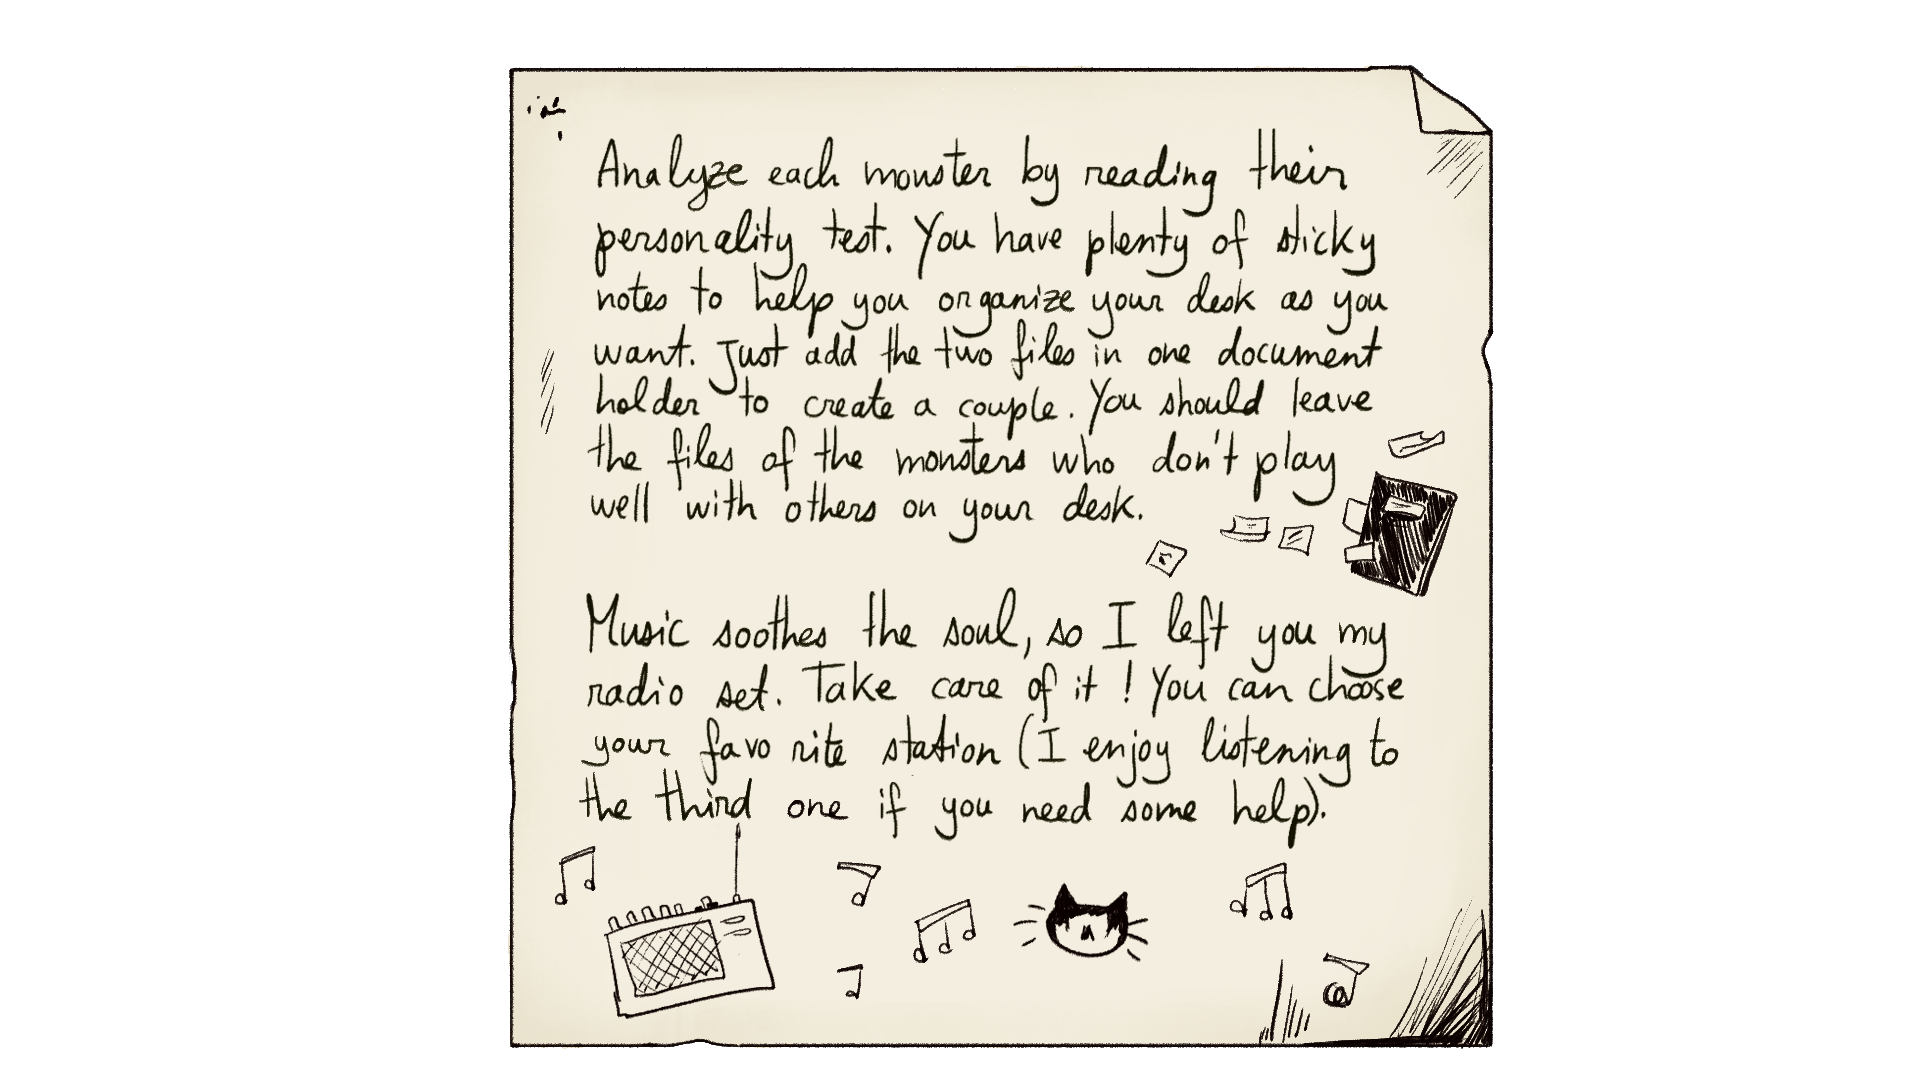 Analyze each monster by reading their
personality test. You have plenty of sticky
notes to help you organize your desk as you
want. Just add the two files in one document
holder to create a couple. You should leave
the files of the monsters who don't play
well with others on your desk.
Music soothes the soul, so I left you my
radio set. Take care of it ! You can choose
your favorite station (I enjoy listening to
the third one if you need some help).